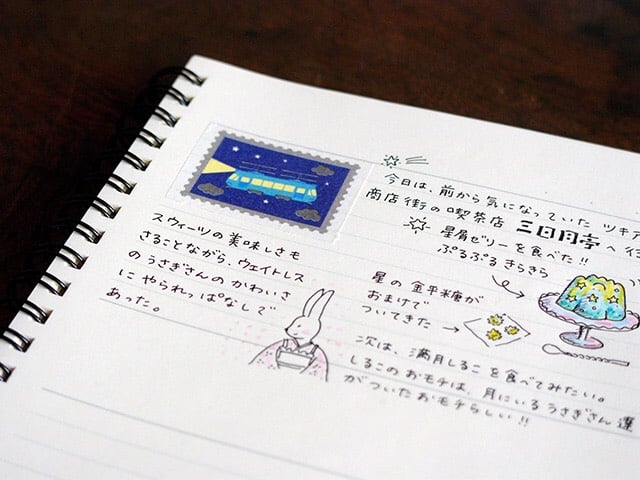 今日は、前から気になっていた ツキア
商店街の喫茶店 三日月亭 へ行
星屑ゼリーを食べた!!
ぷるぷる きらきら
星の金平糖が
おまけで
ついてきた
次は、満月しるこを食べてみたい。
しるこのおモチは、月にいるうさぎさん達
がついたおモチらしい!!
スウィーツの美味しさも
さることながら、ウェイトレス
のうさぎさんのかわいさ
に やられっぱなしで
あった。